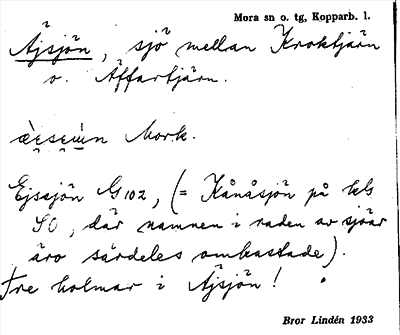 Mora sn o. tg, Kopparb. l.
Äjsjön, sjö mellan Kroktjärn
o. Äffartjärn.
Mork.
Ejssjön G102, (= Kånåsjön på kbl
SO, där namnen i raden av sjöar
äro särdeles omkastade).
Tre holmar i Äjsjön!
Bror Lindén 1933